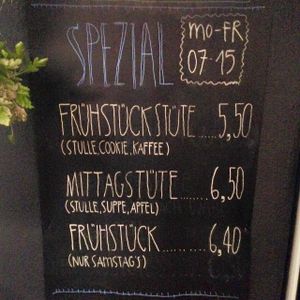 SPEZIAL
MO-FR
07-15
FRÜHSTÜCKSTÜTE ..... 5,50
(STULLE, COOKIE, KAFFEE)
MITTAGSTÜTE ...... 6,50
(STULLE, SUPPE, APFEL)
FRÜHSTÜCK .......... 6,40
(NUR SAMSTAG'S)